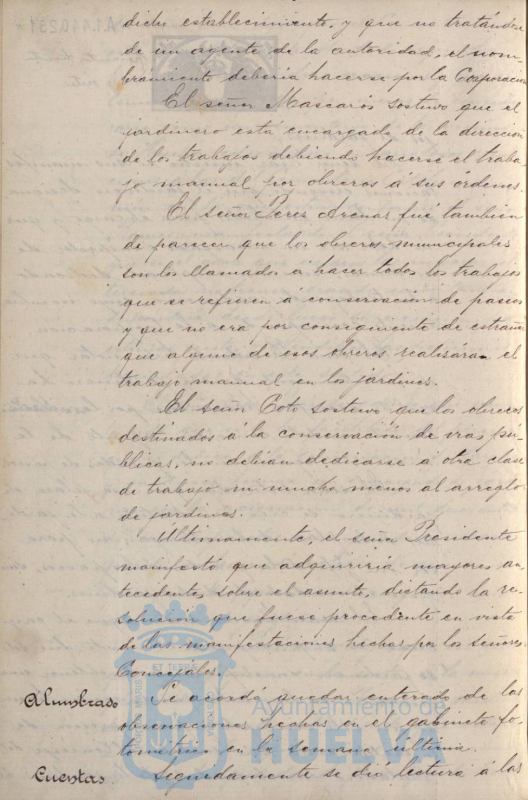 dicho establecimiento, y que no tratándose
de un agente de la autoridad, el nom-
bramiento debería hacerse por la Corporación
El señor Mascarós sostuvo que el
jardinero está encargado de la dirección
de los trabajos debiendo hacerse el traba-
jo manual por obreros á sus órdenes.
El señor Peres Arenas fué tambien
de parecer que los obreros municipales
son los llamados á haser todos los trabajos
que se refieren á conservación de paseos
y que no era por consiguiente de estrañar
que alguno de esos obreros realisáran el
trabajo manual en los jardines.
El señor Coto sostuvo que los obreros
destinados á la conservación de vias pú-
blicas, no debian dedicarse á otra clase
de trabajo ni mucho menos al arreglo
de jardines.
Ultimamente, el señor Presidente
manifestó que adquiriria mayores an-
tecedentes sobre el asunto, dictando la re-
solución que fuese procedente en vista
de las manifestaciones hechas por los señores
Concejales.
Alumbrado Se acordó quedar enterado de las
observaciones hechas en el gabinete fo-
tométrico en la semana última.
Cuentas. Seguidamente se dió lectura á las
Ayuntamiento de
HUELVA